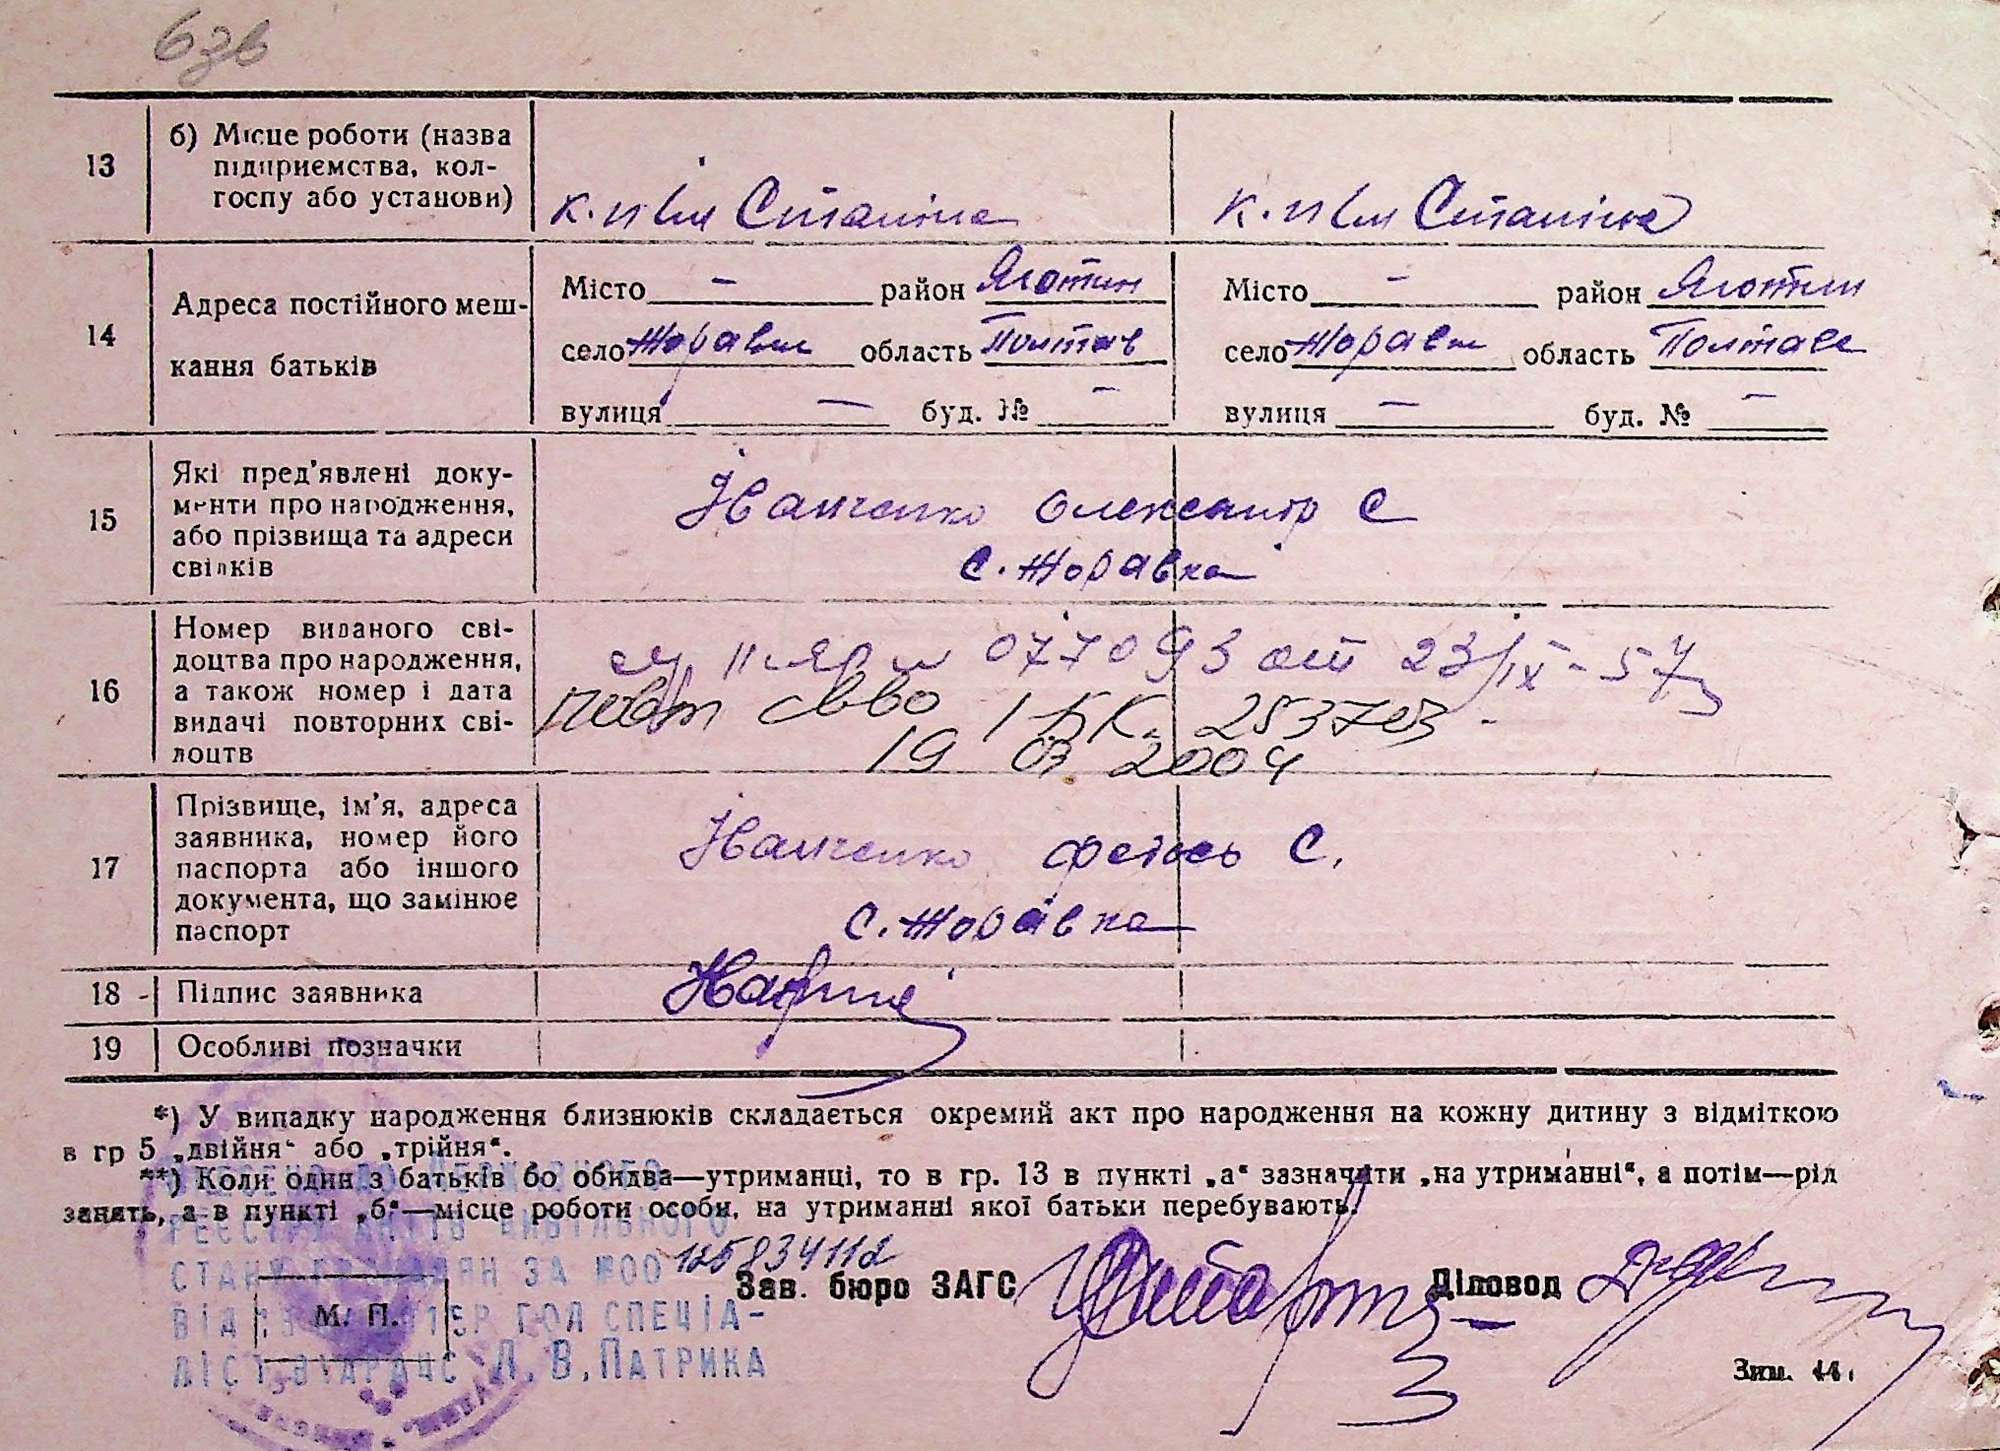 63в
13 б) Місце роботи (назва
підприємства, кол-
госпу або установи)
к-п ім Сталіна
к-п ім Сталіна
14 Адреса постійного меш-
кання батьків
Місто — район Яготин
село Жоравка область Полтав
вулиця — буд. № —
Місто — район Яготин
село Жоравка область Полтавс
вулиця — буд. № —
15 Які пред'явлені доку-
менти про народження,
або прізвища та адреси
свідків
Іванченко Олександр С
с. Жоравка
16 Номер виданого сві-
доцтва про народження,
а також номер і дата
видачі повторних сві-
доцтв
077093 от 23/IX-57
повт св-во І БК. 253703 -
19 03 2004
17 Прізвище, ім'я, адреса
заявника, номер його
паспорта або іншого
документа, що замінює
паспорт
Іванченко Федось С.
с. Жоравка
18 - Підпис заявника
19 Особливі позначки
*) У випадку народження близнюків складається окремий акт про народження на кожну дитину з відміткою
в гр 5 „двійня“ або „трійня“.
**) Коли один з батьків бо обидва—утриманці, то в гр. 13 в пункті „а“ зазначити „на утриманні“, а потім—рід
занять, а в пункті „б“—місце роботи особи, на утриманні якої батьки перебувають.
ДЕРЖАВНОГО
РЕЄСТРУ АКТІВ ЦИВІЛЬНОГО
СТАНУ ГРОМАДЯН ЗА №00 125834112
Зав. бюро ЗАГС
Діловод
М. П.
ГОЛ СПЕЦІА-
ЛІСТ Л. В. ПАТРИКА
Зим. 44.